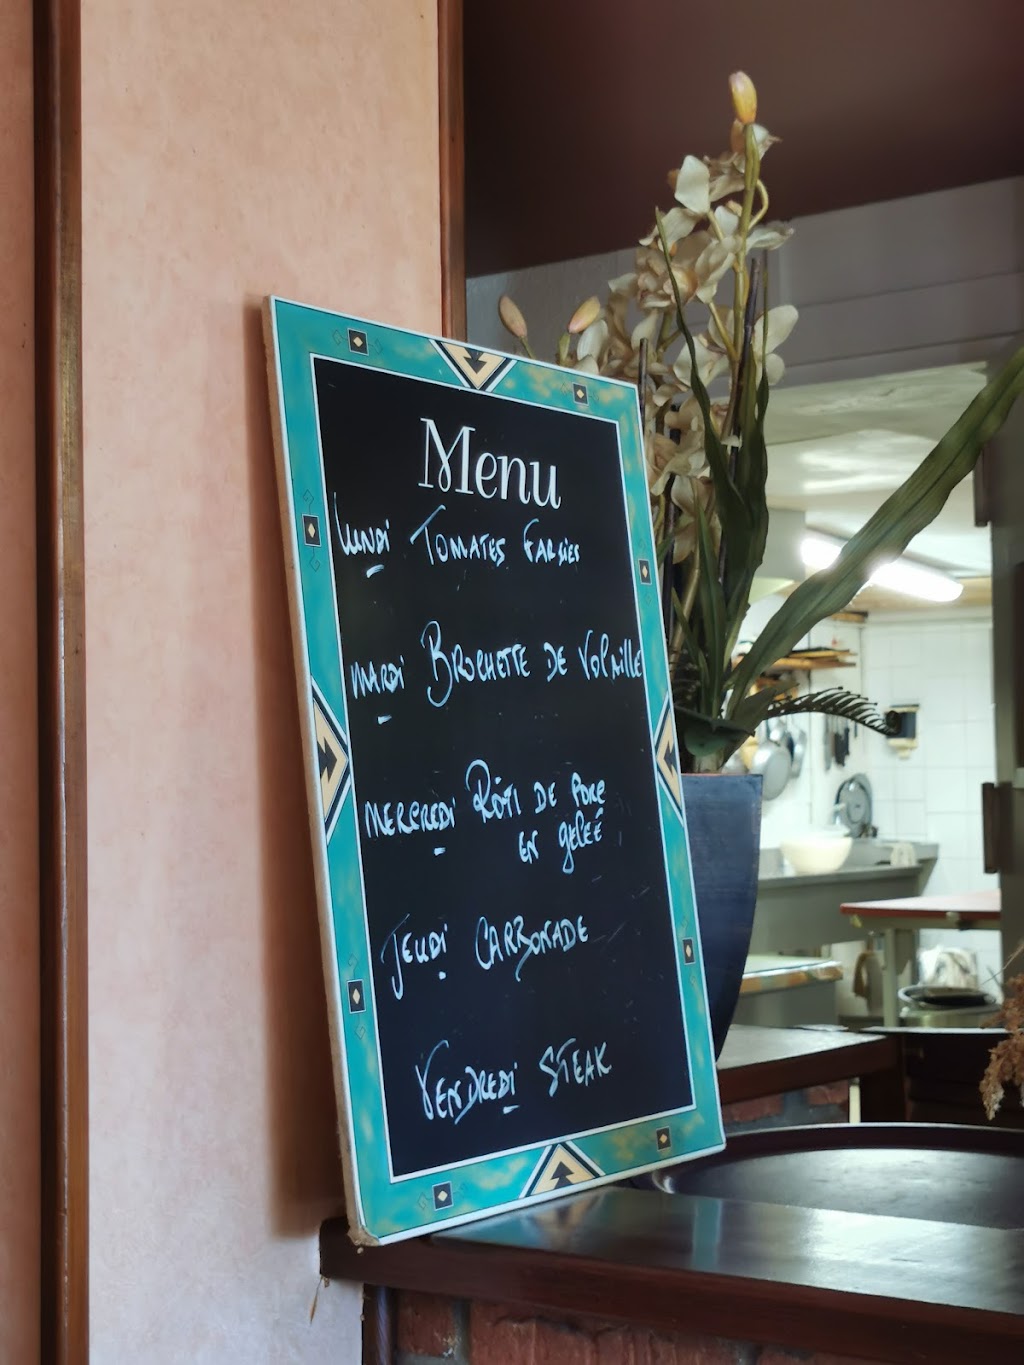 Menu
Lundi Tomates Farcies
Mardi Brochette de Volaille
Mercredi Rôti de Porc
en geleé
Jeudi Carbonade
Vendredi Steak